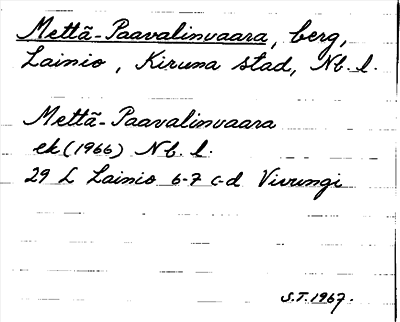 Mettä-Paavalinvaara, berg,
Lainio, Kiruna stad, Nb. l.
Mettä-Paavalinvaara
ek (1966) Nb. l.
29 L Lainio 6-7 c-d Vivungi
S.T. 1967.